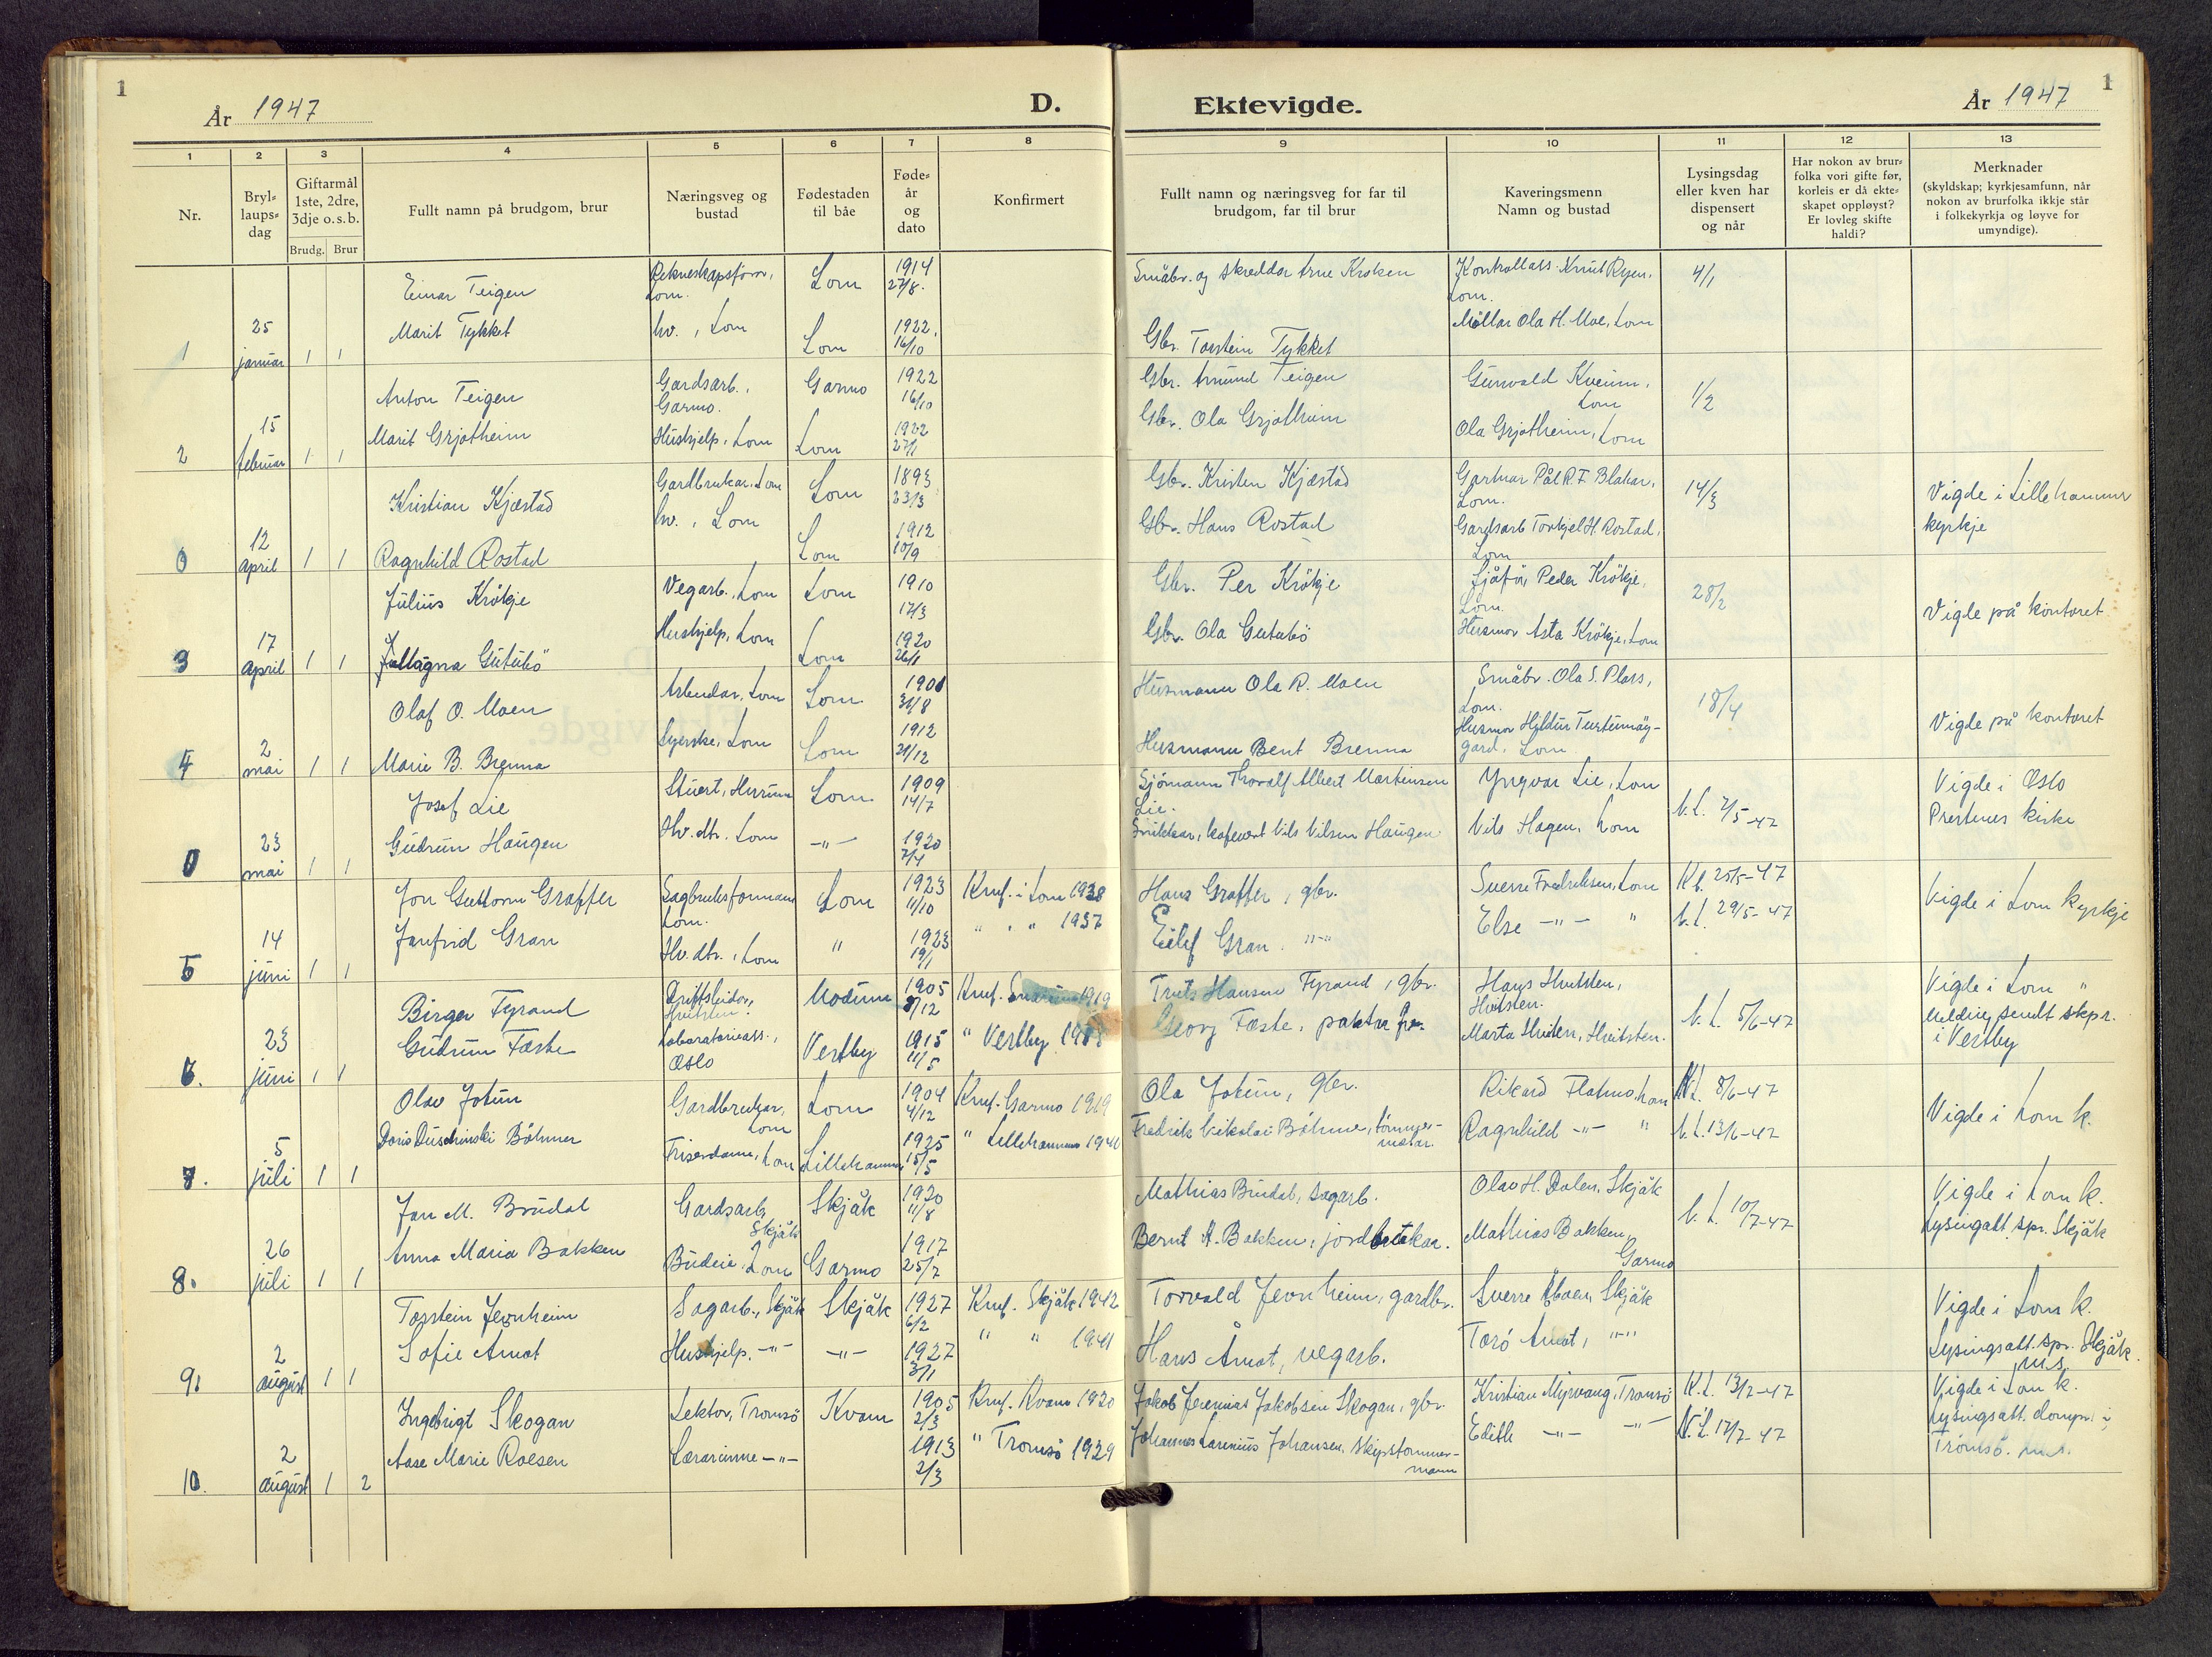 1
År 1947
D.
Ektevigde.
År 1947
1
1 2 3 4 5 6 7 8 9 10 11 12 13
Nr.
Bryl-laups-dag
Giftarmål 1ste, 2dre, 3dje o.s.b.
Brudg. Brur
Fullt namn på brudgom, brur
Næringsveg og bustad
Fødestaden til båe
Føde-år og dato
Konfirmert
Fullt namn og næringsveg for far til brudgom, far til brur
Kaveringsmenn Namn og bustad
Lysingsdag eller kven har dispensert og når
Har nokon av brur-folka vori gifte før, korleis er då ekte-skapet oppløyst? Er lovleg skifte haldi?
Merknader (skyldskap; kyrkjesamfunn, når nokon av brurfolka ikkje står i folkekyrkja og løyve for umyndige).
Einar Teigen Lom 1914 27/8. Småbr. og skreddar Arne Kroken Kontrollass. Knut Ryen, Lom. 4/1
1 25 januar 1 1 Marit Tykket hv., Lom Lom 1922, 16/10 Gbr. Torstein Tykket Møllar Ola H. Moe, Lom
Anton Teigen Gardsarb., Garmo. Garmo 1922 16/10 Gbr. Amund Teigen Gunvald Kveum, Lom 1/2
2 15 februar 1 1 Marit Grjotheim Hushjelp, Lom Lom 1922 27/1 Gbr. Ola Grjotheim Ola Grjotheim, Lom
Kristian Kjæstad Gardbrukar, Lom Lom 1893 23/3 Gbr. Kristen Kjæstad Gartnar Pål R. F Blakar, Lom. 14/3 Vigde i Lillehammer kyrkje
0 12 april 1 1 Ragnhild Rostad hv., Lom Lom 1912 10/9 Gbr. Hans Rostad Gardsarb Torkjel H. Rostad, Lom
Julius Krökje Vegarb., Lom Lom 1910 17/3 Gbr. Per Krökje Sjåfør Peder Krökje, Lom. 28/2 Vigde på kontoret
3 17 april 1 1 Magna Gutubö Hushjelp, Lom Lom 1920 26/1 Gbr. Ola Gutubö Husmor Asta Krökje, Lom
Olaf O. Moen Arbeidar, Lom Lom. 1908 31/8 Husmann Ola R. Moen Småbr. Ola S. Plass, Lom. 18/4 Vigde på kontoret
4 2 mai 1 1 Marie B. Brenna Syerske, Lom Lom 1912 21/12 Husmann Bent Brenna Husmor Hjldur gard, Lom
Josef Lie Stuert, Lom 1909 14/7 Sjömann Thoralf Albert Martinsen Lie. Yngvar Lie, Lom V.L. 2/5-47 Vigde i Oslo Prestenes kirke
0 23 mai 1 1 Gudrun Haugen Hv. dtr. Lom -"- 1920 2/4 Nils Nilsen Haugen Nils Hagen, Lom
Jon Guttorm Graffer Sagbruksformann Lom. Lom 1923 11/10 Knf. i Lom 1938 Hans Graffer, gbr. Sverre Fredriksen, Lom K.L. 25/5-47 Vigde i Lom kyrkje
5 14 juni 1 1 Janfrid Gran Hv. dtr., Lom " 1923 19/1 " " " 1937 Eilif Gran. "-" Else -"- " V.L. 29/5-47
Birger Fyrand Driftsleidar, Hvitsten. Modum 1905 8/12 Knf. Snarum 1919 Truls Hansen Fyrand, gbr. Hans Hvitsten, Hvitsten. V.L. 5/6-47 Vigde i Lom " Melding sendt skpr. i Vestby
6. 23 juni 1 1 Gudrun Fæste Laboratorieass., Oslo Vestby 1915 11/5 " Vestby Georg Fæste, Marta Hvitsten, Hvitsten.
Olav Jotun Gardbrukar, Lom Lom 1904 4/12 Knf. Garmo 1919 Ola Jotun, gbr. Rikard Flatmo, Lom K.L. 8/6-47 Vigde i Lom k.
7. 5 juli 1 1 Doris Duschinski Böhmer Frisørdame, Lom Lillehammer 1925 15/5 " Lillehammer 1940 Fredrik Nikolai Böhme, tömmer-mælar. Ragnhild -"- " V.L. 13/6-47
Jan M. Brudal Gardsarb. Skjåk Skjåk 1920 11/8 Mathias Brudal, sagarb. Olav H. Dalen, Skjåk V.L. 10/7-47 Vigde i Lom k. Lysingatt. spr. Skjåk
8. 26 juli 1 1 Anna Maria Bakken Budeie, Lom Garmo 1917 25/7 Bernt A. Bakken, jordbrukar. Mathias Bakken, Garmo
Torstein Jevnheim Sagarb., Skjåk Skjåk 1927 6/2 Knf. Skjåk 1942 Torvald Jevnheim, gardbr. Sverre Åbaer, Skjåk Vigde i Lom k. Lysingsatt. spr. Skjåk. m.s.
9. 2 august 1 1 Sofie Amot Hushjelp. -"- -"- 1927 3/1 " " 1941 Hans Åmot, vegarb. Torö Åmot, "-"
Ingebrigt Skogan Lektor, Tromsö Kvam 1905 2/3 Knf. Kvam 1920 Jakob Jeremias Jakobsen Skogan, gbr. Kristian Myrvang, Tromsö K.L. 13/7-47 Vigde i Lom k. Lysingsatt. dompr. i Tromsö. m.s.
10. 2 august 1 2 Aase Marie Roesen Lærarinne -"- 1913 2/3 " Tromsö 1929 Johannes Larenius Johansen, skipstömmer-mann Edith -"- -"- V.L. 17/7-47